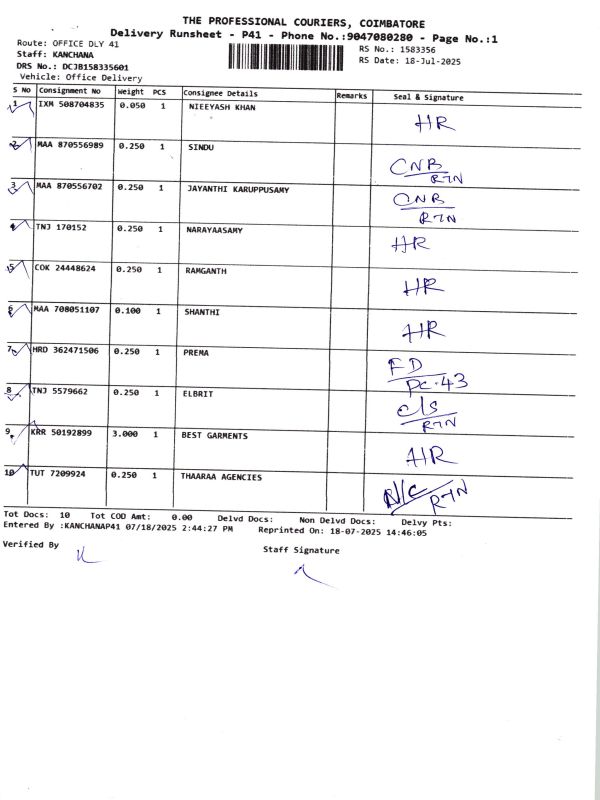 THE PROFESSIONAL COURIERS, COIMBATORE
Delivery Runsheet - P41 - Phone No.:9047080280 - Page No.:1
Route: OFFICE DLY 41
RS No.: 1583356
Staff: KANCHANA
RS Date: 18-Jul-2025
DRS No.: DCJB158335601
Vehicle: Office Delivery
S No Consignment No Weight PCS Consignee Details Remarks Seal & Signature
1 IXM 508704835 0.050 1 NIEEYASH KHAN HR
2 MAA 870556989 0.250 1 SINDU CNB
RTN
3 MAA 870556702 0.250 1 JAYANTHI KARUPPUSAMY CNB
RTN
4 TNJ 170152 0.250 1 NARAYAASAMY HR
5 COK 24448624 0.250 1 RAMGANTH HR
6 MAA 708051107 0.100 1 SHANTHI HR
7 HRD 362471506 0.250 1 PREMA FD
PC-43
8 TNJ 5579662 0.250 1 ELBRIT C/S
RTN
9 KRR 50192899 3.000 1 BEST GARMENTS HR
10 TUT 7209924 0.250 1 THAARAA AGENCIES N/C
RTN
Tot Docs: 10 Tot COD Amt: 0.00 Delvd Docs: Non Delvd Docs: Delvy Pts:
Entered By :KANCHANAP41 07/18/2025 2:44:27 PM Reprinted On: 18-07-2025 14:46:05
Verified By Staff Signature